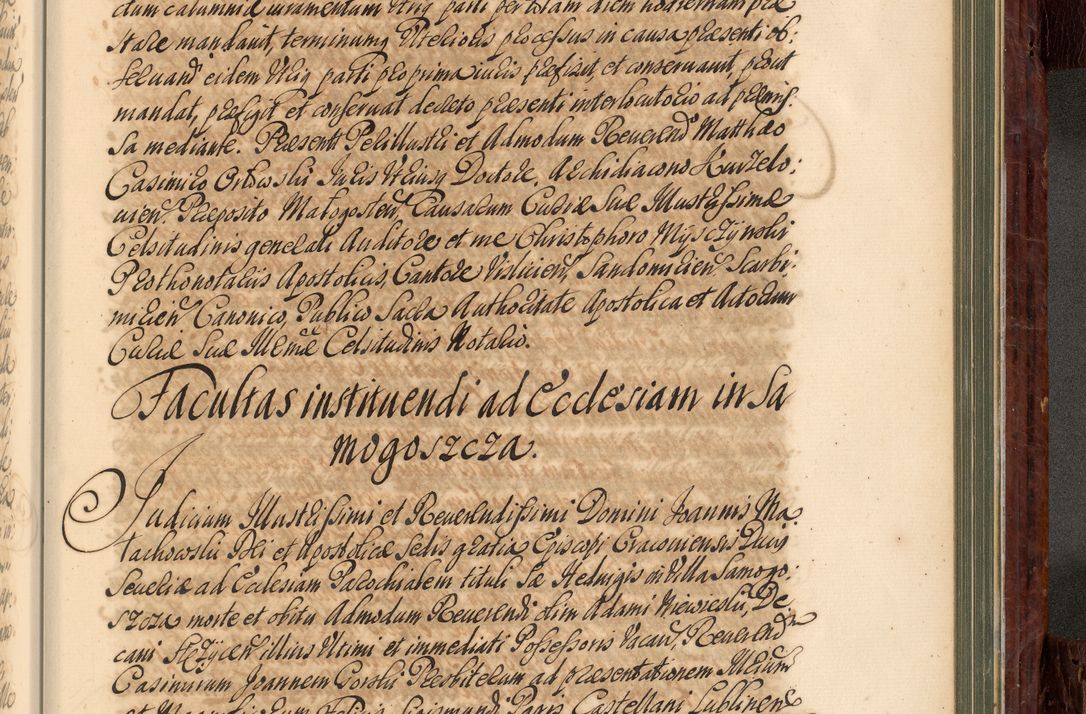 dum calumniæ iuramentum Utriq parti per totam diem hodiernam præ
stare mandauit, terminumq Ulterioris processus in causa præsenti ob:
seruand' eidem Utriq parti pro prima iuris præfixit, et conseruauit, prout
mandat, præfigit et conseruat decreto præsenti interlocutorio ad præmis:
sa mediante. Præsente Perillustri et Admodum Reuerend' Matthæo
Casimiro Orłowski Juris Utriusq Doctore, Archidiacono Kurzelo:
uien', Præposito Małogosten', Causarum Curiæ Suæ Illustrissimæ
Celsitudinis generali Auditore et me Christophoro Mysczynski
Prothonotariis Apostolicis, Cantore Vislicien', Sandomirien' Scarbi:
mirien' Canonico, Publico Sacra Authoritate Apostolica et Actorum
Curiæ Suæ Illmæ Celsitudinis Notario.
Facultas instituendi ad Ecclesiam in Sa
mogoszcza.
Judicium Illustrissimi et Reuerendissimi Domini Joannis Ma
łachowski Dei et Apostolicæ Sedis gratia Episcopi Cracouiensis Ducis
Seueriæ ad Ecclesiam Parochialem tituli Sæ Hedwigis in Villa Samogo:
szcza morte et obitu Admodum Reuerendi olim Adami De
cani illius Ultimi et immediati Possessoris Vacan', Reuerend'
Casimirum Joannem Gorski Presbiterum ad præsentationem Illrum
et Castellani Lublinen'